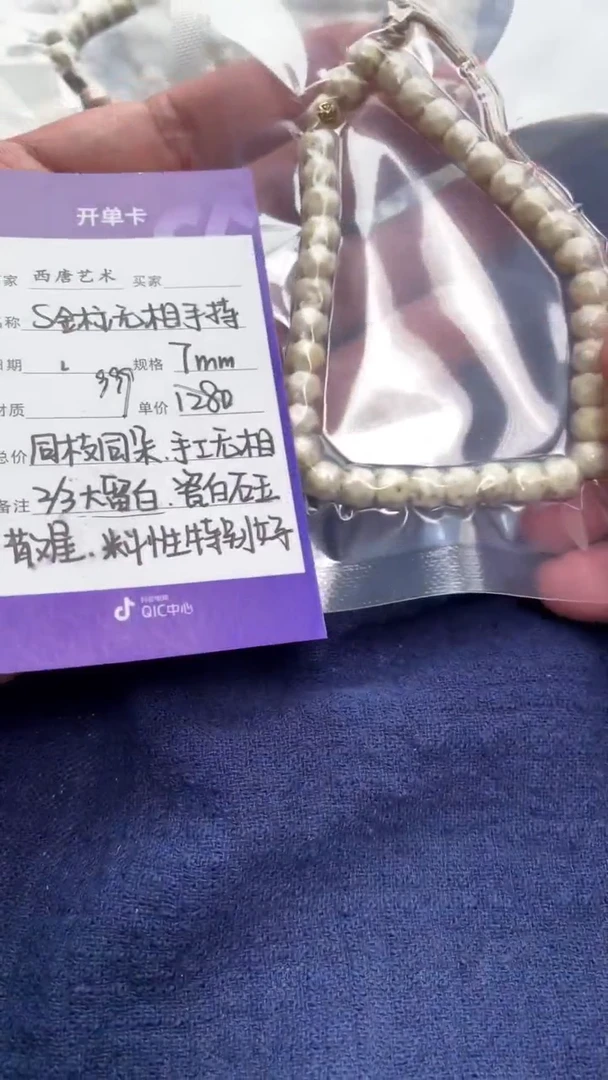 开单卡
家 西唐艺术 买家
名称 S金柱无相手持
日期 规格 7mm
材质 399 单价 1280
总价 同枝同朵.手工无相
备注 2/3大留白.瓷白石玉
料性特别好
抖音电商
QIC中心